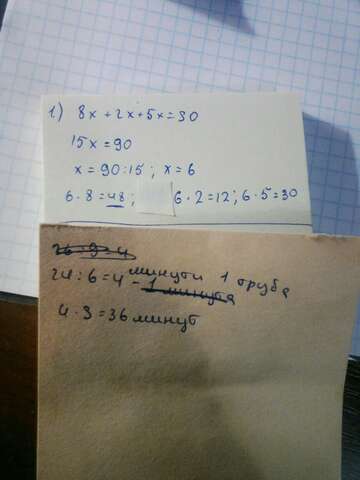 1.) 8x + 2x + 5x = 30
15x = 90
x = 90 : 15 ; x = 6
6 · 8 = 48 ; 6 · 2 = 12 ; 6 · 5 = 30
24 : 6 = 4 минути 1 труба
- 1 минута
4 · 3 = 36 минут